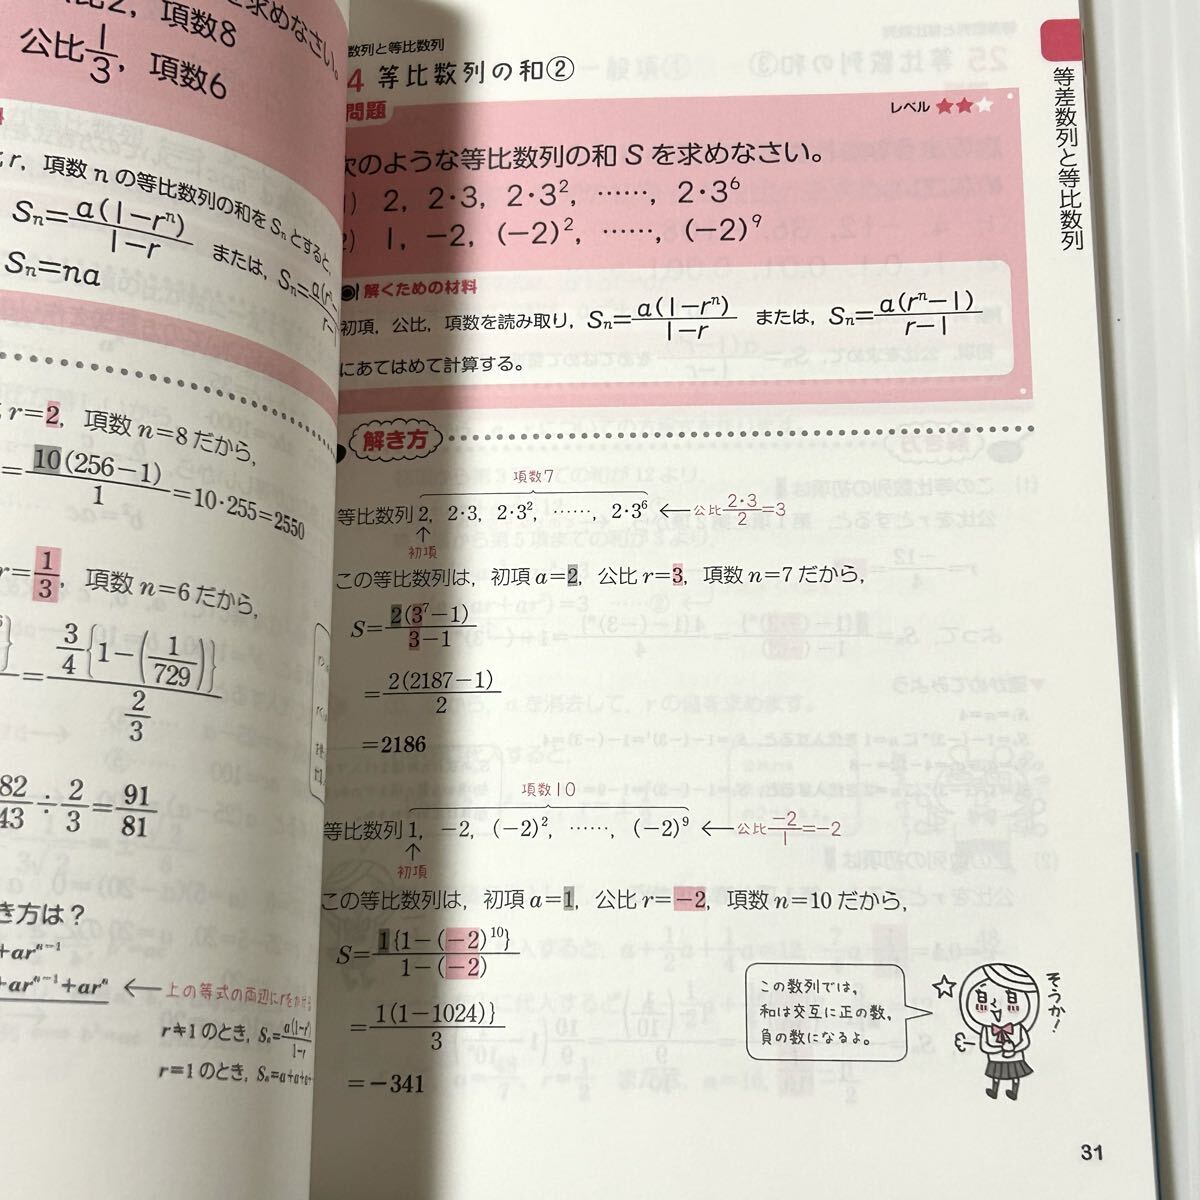 求めなさい。
2, 項数8
公比1/3, 項数6
r, 項数 n の等比数列の和を Sn とすると,
Sn=a(1-rⁿ)/1-r または, Sn=
Sn=na
r=2, 項数 n=8だから,
=10(256-1)/1=10・255=2550
r=1/3, 項数 n=6だから,
=3/4{1-(1/729)}/2/3
÷2/3=91/81
き方は？
+arⁿ⁻¹
+arⁿ⁻¹+arⁿ ← 上の等式の両辺にrをかける
r≠1のとき, Sn=a(1-r
r=1のとき, Sn=a+a+a+
数列と等比数列
4 等比数列の和②
問題
レベル ★★☆
次のような等比数列の和 S を求めなさい。
1) 2, 2・3, 2・3², ……, 2・3⁶
2) 1, -2, (-2)², ……, (-2)⁹
解くための材料
初項, 公比, 項数を読み取り, Sn=a(1-rⁿ)/1-r または, Sn=a(rⁿ-1)/r-1
にあてはめて計算する。
解き方
項数7
等比数列 2, 2・3, 2・3², ……, 2・3⁶ ← 公比 2・3/2=3
↑
初項
この等比数列は, 初項 a=2, 公比 r=3, 項数 n=7 だから,
S=2(3⁷-1)/3-1
=2(2187-1)/2
=2186
項数10
等比数列 1, -2, (-2)², ……, (-2)⁹ ← 公比 -2/1=-2
↑
初項
この等比数列は, 初項 a=1, 公比 r=-2, 項数 n=10 だから,
S=1{1-(-2)¹⁰}/1-(-2)
=1(1-1024)}/3
=-341
この数列では,
和は交互に正の数,
負の数になるよ。
そうか！
等差数列と等比数列
31